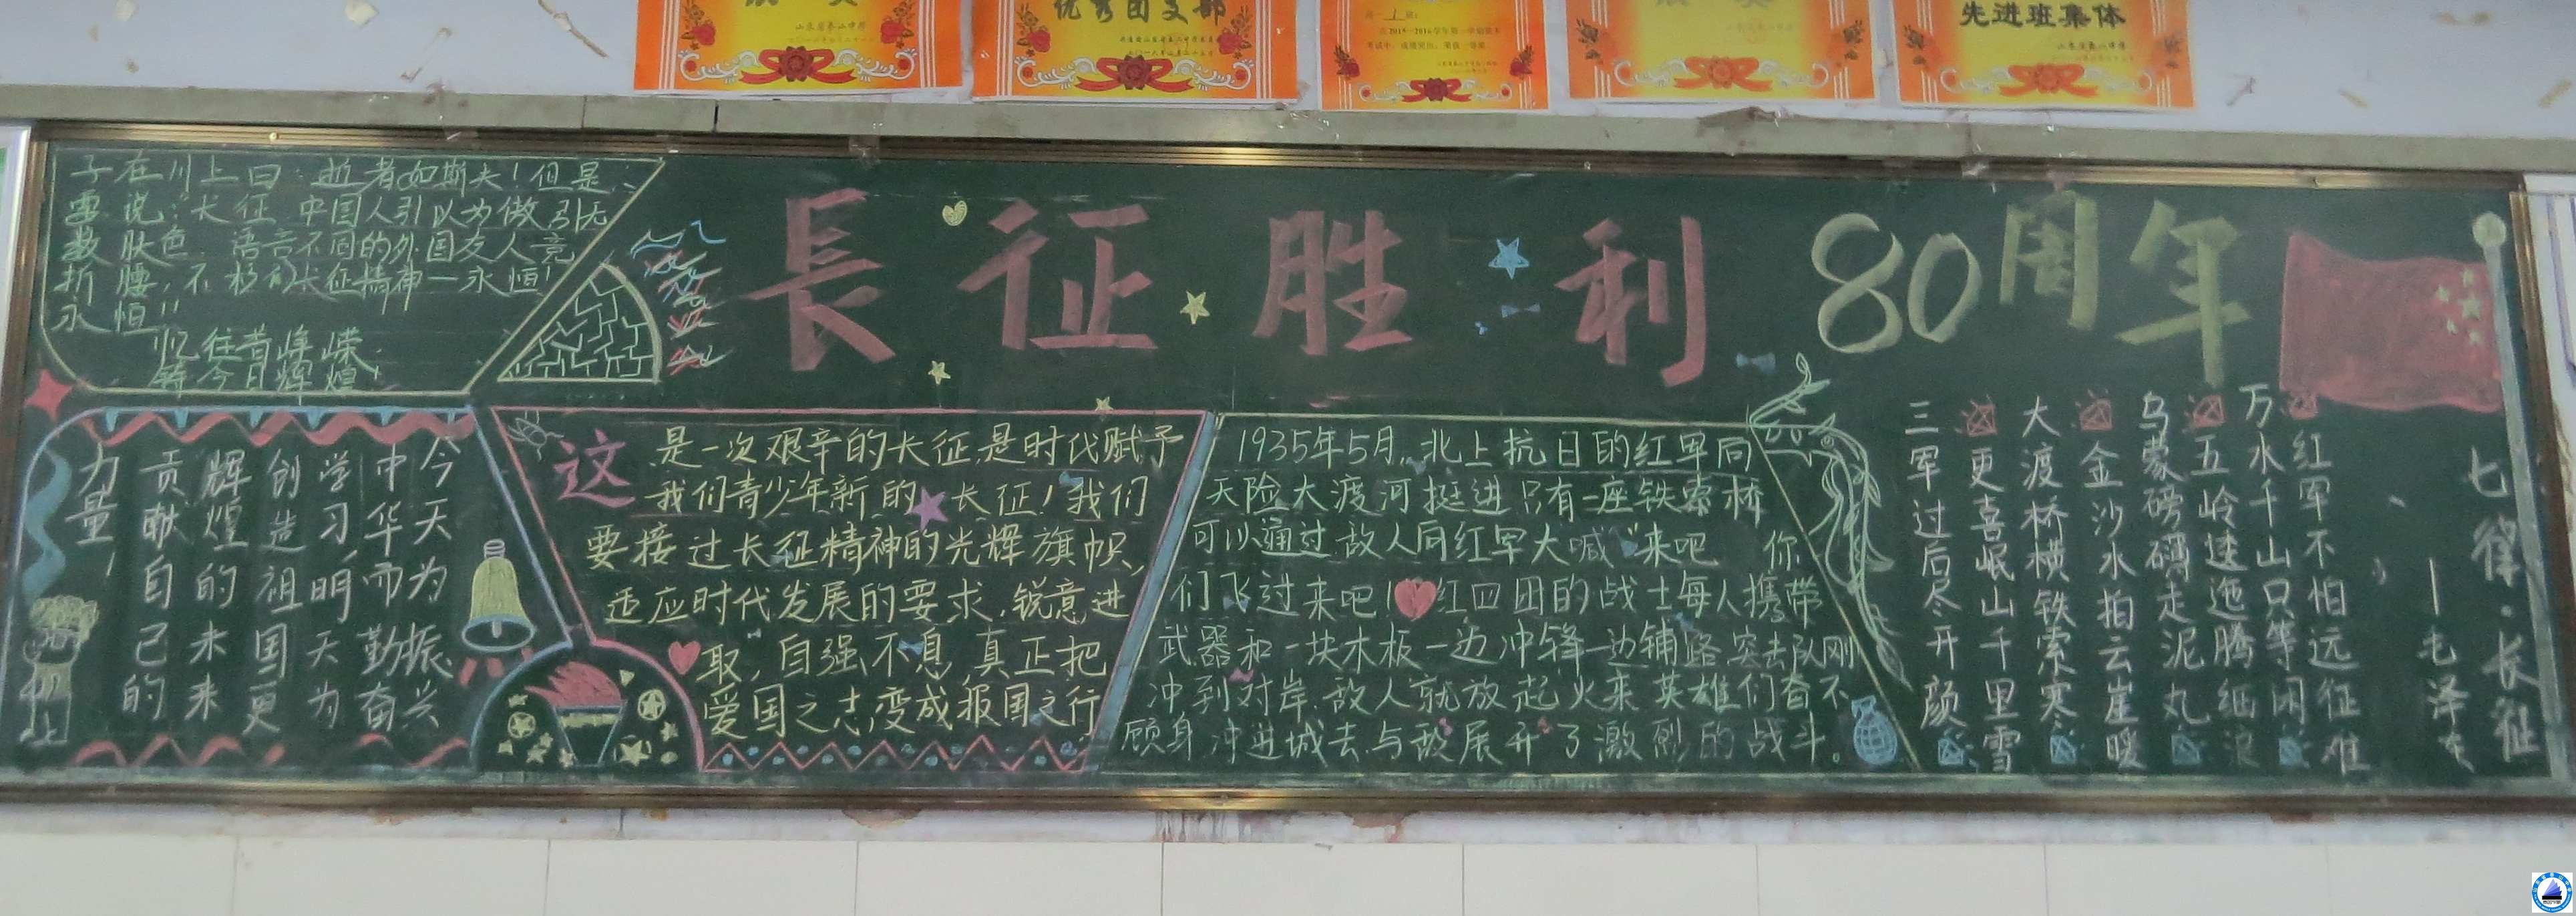 优秀团支部
先进班集体
長征胜利80周年
子在川上曰:逝者如斯夫!但是
要说:长征 中国人引以为傲 引无
数肤色、语言不同的外国友人竞
折腰,不朽的长征精神一永恒!
永恒!!
忆往昔峥嵘
铸今日辉煌!
今天为振兴
中华而勤奋
学习,明天为
创造祖国更
辉煌的未来
贡献自己的
力量!
这是一次艰辛的长征,是时代赋予
我们青少年新的长征!我们
要接过长征精神的光辉旗帜,
适应时代发展的要求,锐意进
取,自强不息,真正把
爱国之志变成报国之行
1935年5月,北上抗日的红军向
天险大渡河挺进 只有一座铁索桥
可以通过 敌人向红军大喊“来吧 你
们飞过来吧!红四团的战士每人携带
武器和一块木板一边冲锋一边铺路 突击队刚
冲到对岸,敌人就放起火来 英雄们奋不
顾身,冲进城去与敌展开了激烈的战斗。
七律·长征
—毛泽东
红军不怕远征难
万水千山只等闲
五岭逶迤腾细浪
乌蒙磅礴走泥丸
金沙水拍云崖暖
大渡桥横铁索寒
更喜岷山千里雪
三军过后尽开颜